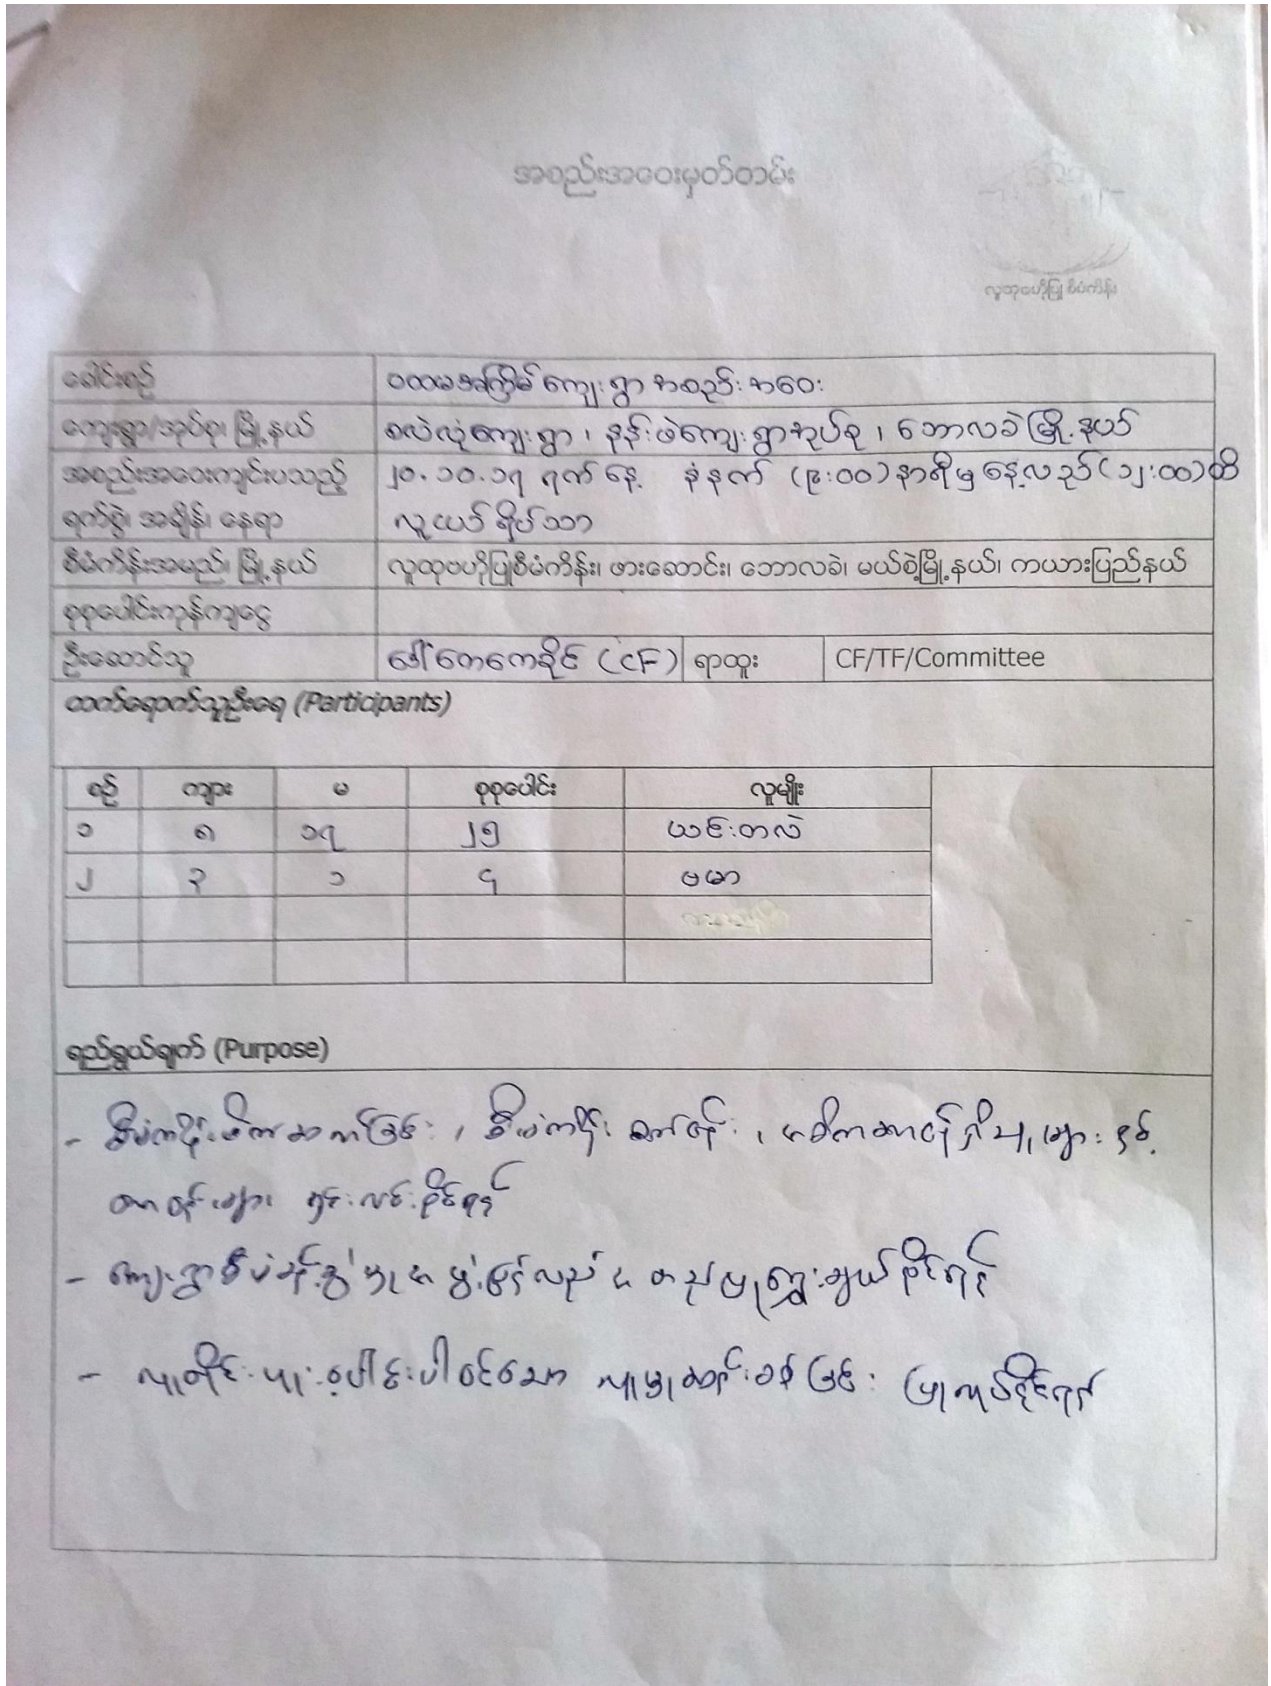 အစည်းအဝေးမှတ်တမ်း
လူထုဗဟိုပြု စီမံကိန်း
ခေါင်းစဉ် ပထမအကြိမ် ကျေးရွာ အစည်းအဝေး
ကျေးရွာ/အုပ်စု၊ မြို့နယ် စလဲလုံကျေးရွာ၊ နန်းဖဲကျေးရွာအုပ်စု၊ ဘောလခဲမြို့နယ်
အစည်းအဝေးကျင်းပသည့် ၂၀.၁၀.၁၇ ရက်နေ့ နံနက် (၉:၀၀) နာရီမှ နေ့လည် (၁၂:၀၀) ထိ
ရက်စွဲ၊ အချိန်၊ နေရာ လူငယ်ရိပ်သာ
စီမံကိန်းအမည်၊ မြို့နယ် လူထုဗဟိုပြုစီမံကိန်း၊ ဖားဆောင်း၊ ဘောလခဲ၊ မယ်စဲ့မြို့နယ်၊ ကယားပြည်နယ်
စုစုပေါင်းကုန်ကျငွေ
ဦးဆောင်သူ ဒေါ်ကေကေခိုင် (CF) ရာထူး CF/TF/Committee
တက်ရောက်သူဦးရေ (Participants)
စဉ် ကျား မ စုစုပေါင်း လူမျိုး
၁ ၈ ၁၇ ၂၅ ယင်းတလဲ
၂ ၃ ၁ ၄ ဗမာ
ရည်ရွယ်ချက် (Purpose)
- စီမံကိန်းမိတ်ဆက်ခြင်း၊ စီမံကိန်း စက်ဝန်း၊ အဓိကတာဝန်ရှိသူများနှင့်
တာဝန်များ ရှင်းလင်းနိုင်ရန်
- ကျေးရွာစီမံခန့်ခွဲမှုအဖွဲ့ဖွဲ့စည်း အတည်ပြုရွေးချယ်နိုင်ရန်
- လူတိုင်းပူးပေါင်းပါဝင်သော လူမှုဆန်းစစ်ခြင်း ပြုလုပ်နိုင်ရန်